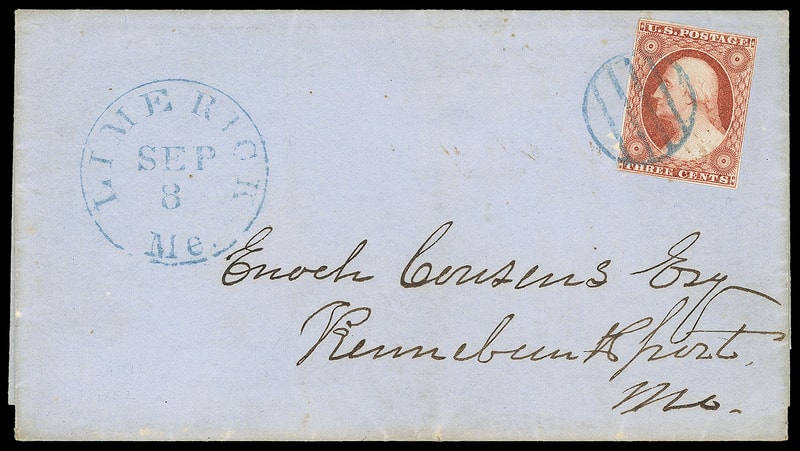 U.S. POSTAGE
THREE CENTS
LIMERICK
SEP
8
Me.
Enoch Cousens Esq
Kennebunkport,
Me.